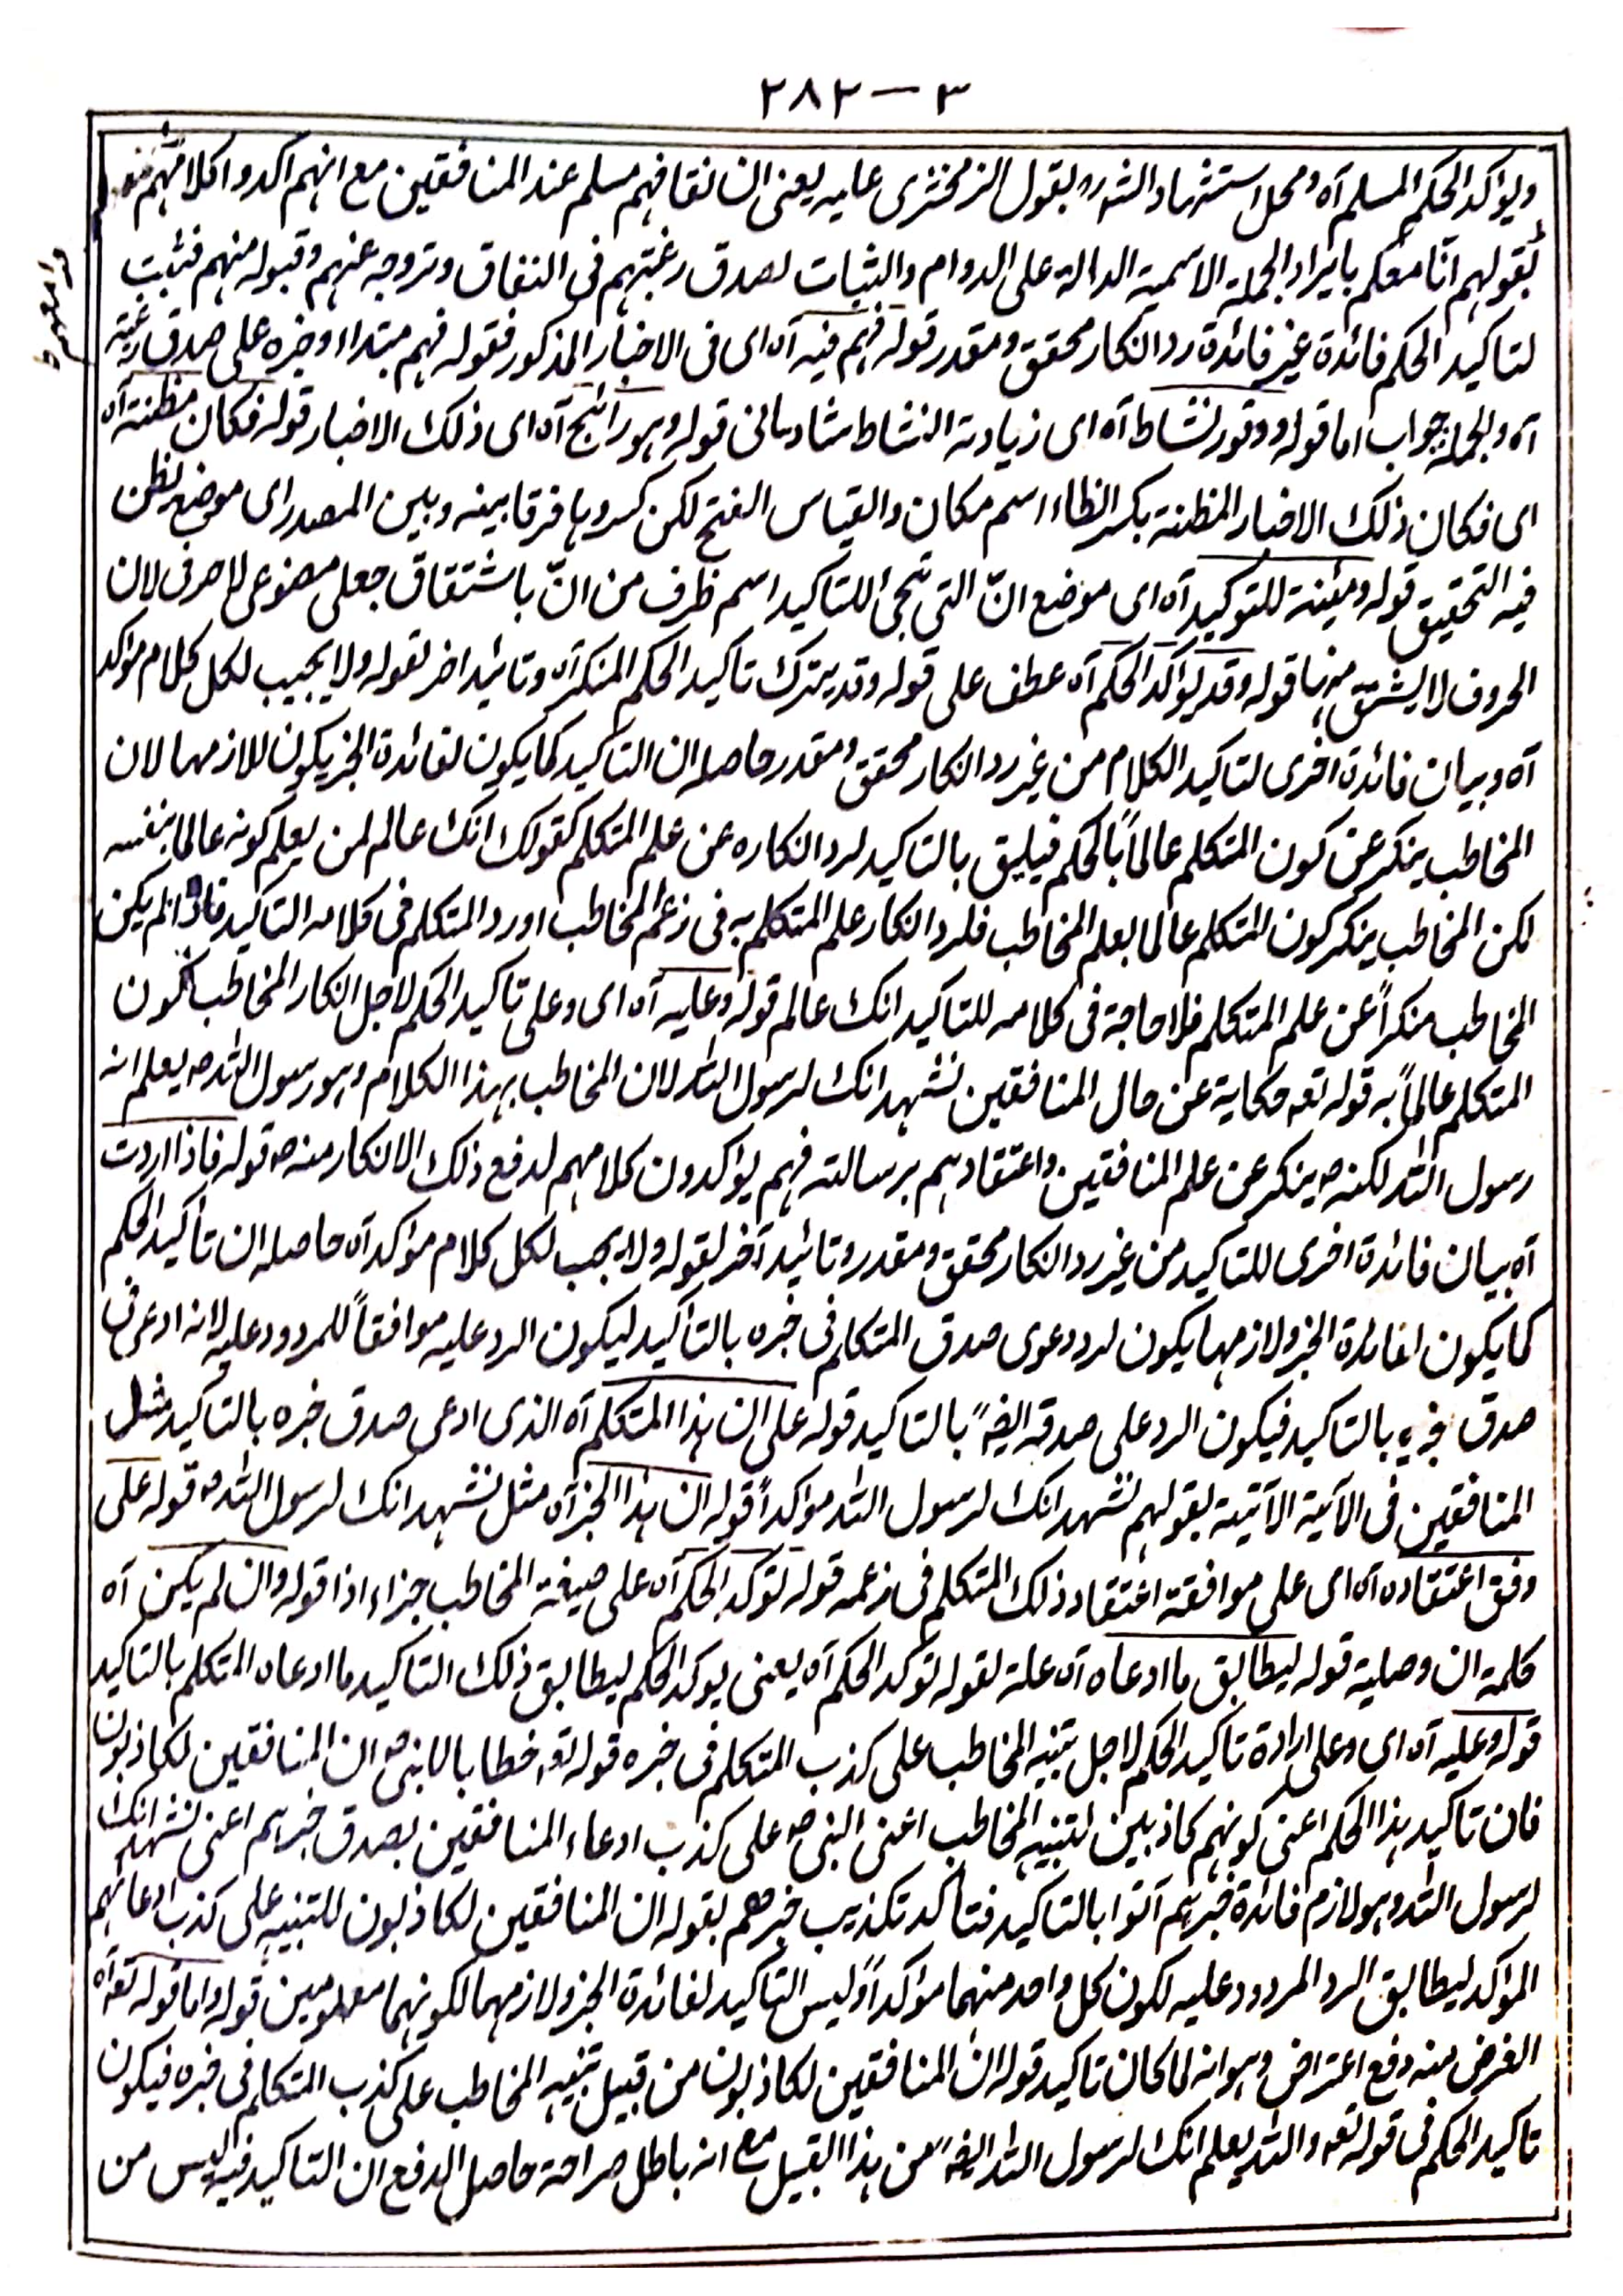 ٢٨٢ — ٣
ويؤكد الحكم المسلم آه ومحل استشهاد الشرء بقول الزمخشرى عليه يعنى ان نفاقهم مسلم عند المنافقين مع انهم اكدوا كلامهم
بقولهم انا معكم بايراد الجملة الاسمية الدالة على الدوام والثبات لصدق رغبتهم فى النفاق وتروجه عنهم وقبوله منهم فثبت
لتاكيد الحكم فائدة غير فائدة رد انكار محقق ومقدر قوله فهم فيه آه اى فى الاخبار المذكور فقوله فهم مبتداء وخبره على صدق رغبته
آه والجملة جواب اما قوله ووفور نشاط آه اى زيادة النشاط شادمانى قوله وهو رائج آه اى ذلك الاخبار قوله فكان مظنة آه
اى فكان ذلك الاخبار المظنة بكسر الظاء اسم مكان والقياس الفتح لكن كسروها فرقا بينه وبين المصدر اى موضع يظن
فيه التحقيق قوله ومئنة للتوكيد آه اى موضع انّ التى تجئ للتاكيد اسم ظرف من انّ باشتقاق جعلى مصنوعى لا صرفى لان
الحروف لا يشتق منها قوله وقد يؤكد الحكم آه عطف على قوله وقد يترك تاكيد الحكم المنكر آه وتائيد اخر لقوله ولا يجب لكل كلام مؤكد
آه وبيان فائدة اخرى لتاكيد الكلام من غير رد انكار محقق ومقدر حاصله ان التاكيد كما يكون لفائدة الخبر يكون للازمها لان
المخاطب ينكر عن كون المتكلم عالماً بالحكم فيليق بالتاكيد لرد انكاره عن علم المتكلم كقولك انك عالم لمن يعلم كونه عالما بنفسه
لكن المخاطب ينكر كون المتكلم عالما بعلم المخاطب فلرد انكار علم المتكلم به فى زعم المخاطب اورد المتكلم فى كلامه التاكيد فاذا لم يكن
المخاطب منكراً عن علم المتكلم فلا حاجة فى كلامه للتاكيد انك عالم قوله وعليه آه اى وعلى تاكيد الحكم لاجل انكار المخاطب لكون
المتكلم عالماً به قوله تعه حكاية عن حال المنافقين نشهد انك لرسول الله لان المخاطب بهذا الكلام وهو رسول الله ص يعلم انه
رسول الله لكنه ص ينكر عن علم المنافقين واعتقادهم برسالته فهم يؤكدون كلامهم لدفع ذلك الانكار منه ص قوله فاذا اردت
آه بيان فائدة اخرى للتاكيد من غير رد انكار محقق ومقدر وتائيد آخر لقوله ولا يجب لكل كلام مؤكد آه حاصله ان تأكيد الحكم
كما يكون لفائدة الخبر ولازمها يكون لرد دعوى صدق المتكلم فى خبره بالتأكيد ليكون الرد عليه موافقاً للمردود عليه لانه ادعى فى
صدق خبره بالتاكيد فيكون الرد على صدقه ايضاً بالتاكيد قوله على ان هذا المتكلم آه الذى ادعى صدق خبره بالتاكيد مثل
المنافقين فى الآية الآتية بقولهم نشهد انك لرسول الله مؤكداً قوله ان هذا الخبر آه مثل نشهد انك لرسول الله ص قوله على
وفق اعتقاده آه اى على موافقة اعتقاد ذلك المتكلم فى زعمه قوله تؤكد الحكم آه على صيغة المخاطب جزاء اذا قوله وان لم يكن آه
كلمة ان وصلية قوله ليطابق ما ادعاه آه علة لقوله توكد الحكم آه يعنى يوكد الحكم ليطابق ذلك التاكيد ما ادعاه المتكلم بالتاكيد
قوله وعليه آه اى وعلى ارادة تاكيد الحكم لاجل تنبيه المخاطب على كذب المتكلم فى خبره قوله تعه خطابا بالنبى ص ان المنافقين لكاذبون
فان تاكيد هذا الحكم اعنى كونهم كاذبين لتنبيه المخاطب اعنى النبى ص على كذب ادعاء المنافقين بصدق خبرهم اعنى نشهد انك
لرسول الله وهو لازم فائدة خبرهم آتوا بالتاكيد فتأكد تكذيب خبرهم بقوله ان المنافقين لكاذبون للتنبيه على كذب ادعائهم
المؤكد ليطابق الرد المردود عليه لكون كل واحد منهما مؤكداً وليس التاكيد لفائدة الخبر ولازمها لكونهما معلومين قوله واما قوله تعه آه
الغرض منه دفع اعتراض وهو انه لما كان تاكيد قوله ان المنافقين لكاذبون من قبيل تنبيه المخاطب على كذب المتكلم فى خبره فيكون
تاكيد الحكم فى قوله تعه والله يعلم انك لرسول الله ايضاً من هذا القبيل مع انه باطل صراحة حاصل الدفع ان التاكيد فيه ليس من